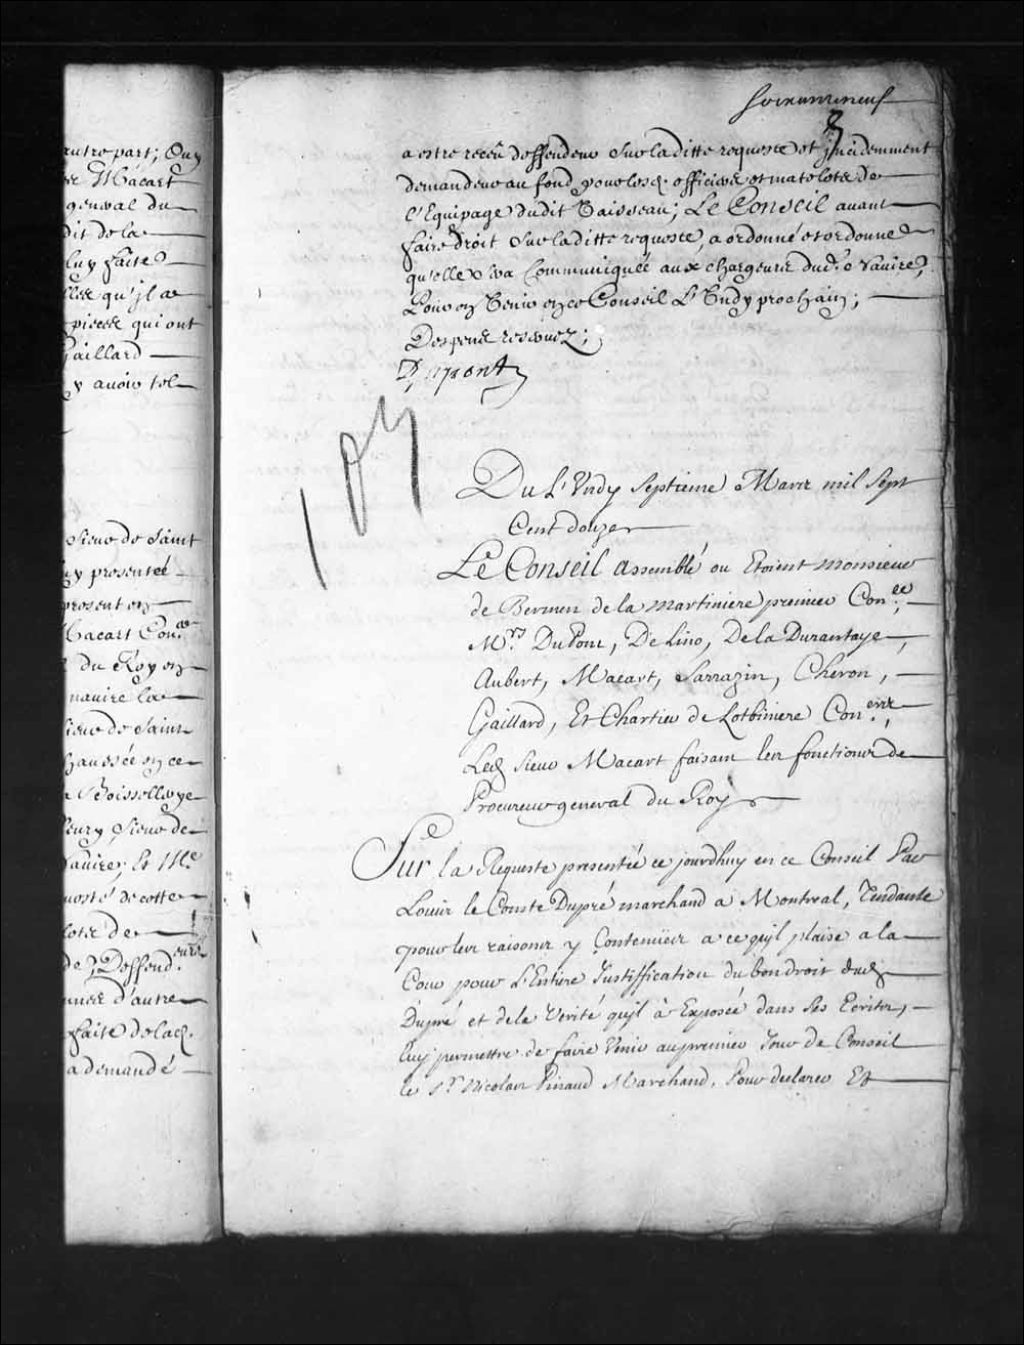 autre part; Ouy
Macart
general du
dit de la
luy faite
qu'jl a
pieces qui ont
Gaillard
y avoir tel
Sieur de Saint
presentée
present en
Macart Con.er
du Roy en
navire la
Sieur de Saint
chaussée en ce
Boisselleye
fleury, Sieur de
navire; Et Me
de cotte
de
de, Deffend.eurs
d'autre
faite de lad.
a demandé
Soixante neuf
a estre receu deffendeur sur la ditte requeste et jncidemment
demandeur au fond pour lesd. officiers et matelots de
l'Equipage dudit Vaisseau; Le Conseil avant
faire droit sur la ditte requeste, a ordonné et ordonne
qu'elle sera Communiquée aux chargeurs dud. navire,
Pour en Venir en ce Conseil L'Undy prochain;
Despens reservez;
Dupont
107
Du L'Undy septieme Mars mil sept
Cent douze
Le Conseil assemblé ou Etoient monsieur
de Bermen de la martiniere premier Con.er
Mrs. DuPont, De Lino, De la Durantaye,
Aubert, Macart, Sarrazin, Cheron,
Gaillard, Et Chartier de Lotbiniere Con.ers,
Led. sieur Macart faisant les fonctions de
Procureur general du Roy
Sur la Requeste presentée ce jourdhuy en ce Conseil Par
Louis le Comte Dupré marchand a Montreal, Tendante
pour les raisons y Contenües a ce qu'jl plaise a la
Cour pour L'Entiere Justiffication du bon droit dud.
Dupré et dela Verité qu'jl à Exposée dans ses Ecrites,
luy permettre de faire Venir au premier Jour de Conseil
le Sr. Nicolas Pinaud Marchand, Pour declarer Et